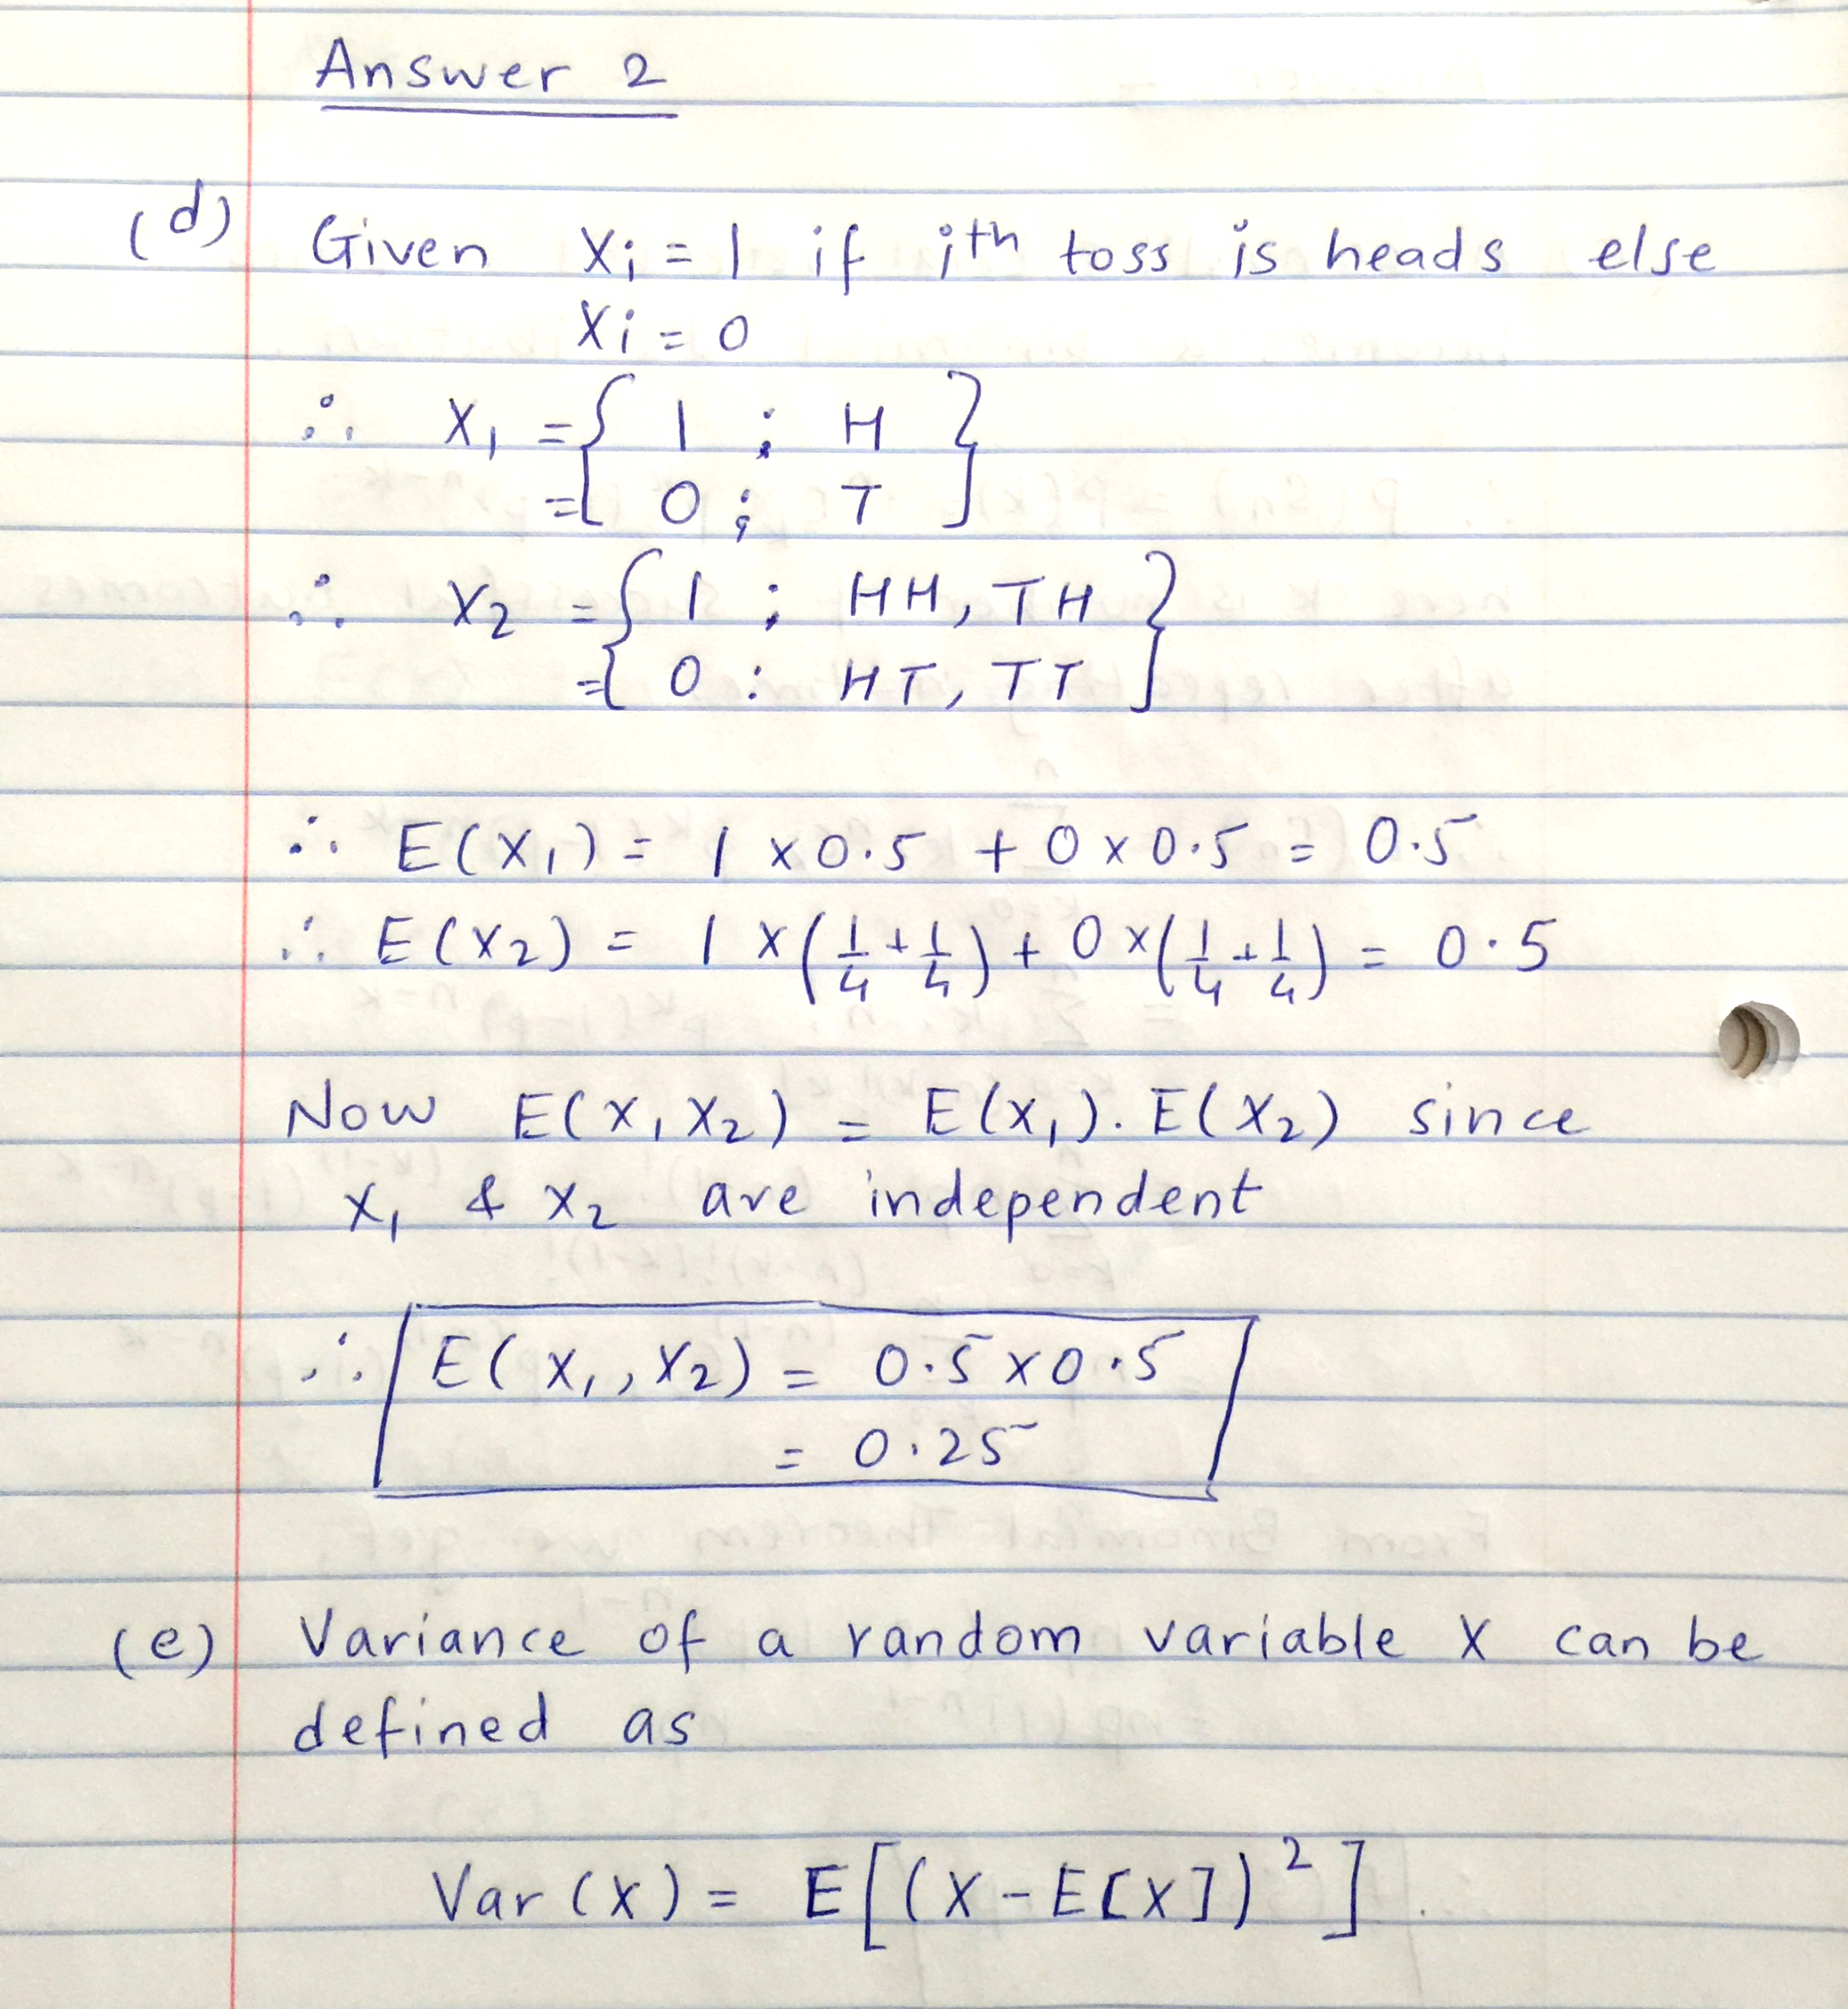 Answer 2
(d) Given Xi = 1 if ith toss is heads else
Xi = 0
∴ X₁ = { 1 ; H }
= { 0 ; T }
∴ X₂ = { 1 ; HH, TH }
= { 0 : HT, TT }
∴ E(X₁) = 1 × 0.5 + 0 × 0.5 = 0.5
∴ E(X₂) = 1 × (1/4 + 1/4) + 0 × (1/4 + 1/4) = 0.5
Now E(X₁X₂) = E(X₁). E(X₂) since
X₁ & X₂ are independent
∴ E(X₁, X₂) = 0.5 × 0.5
= 0.25
(e) Variance of a random variable X can be
defined as
Var (X) = E[(X - E[X])²]